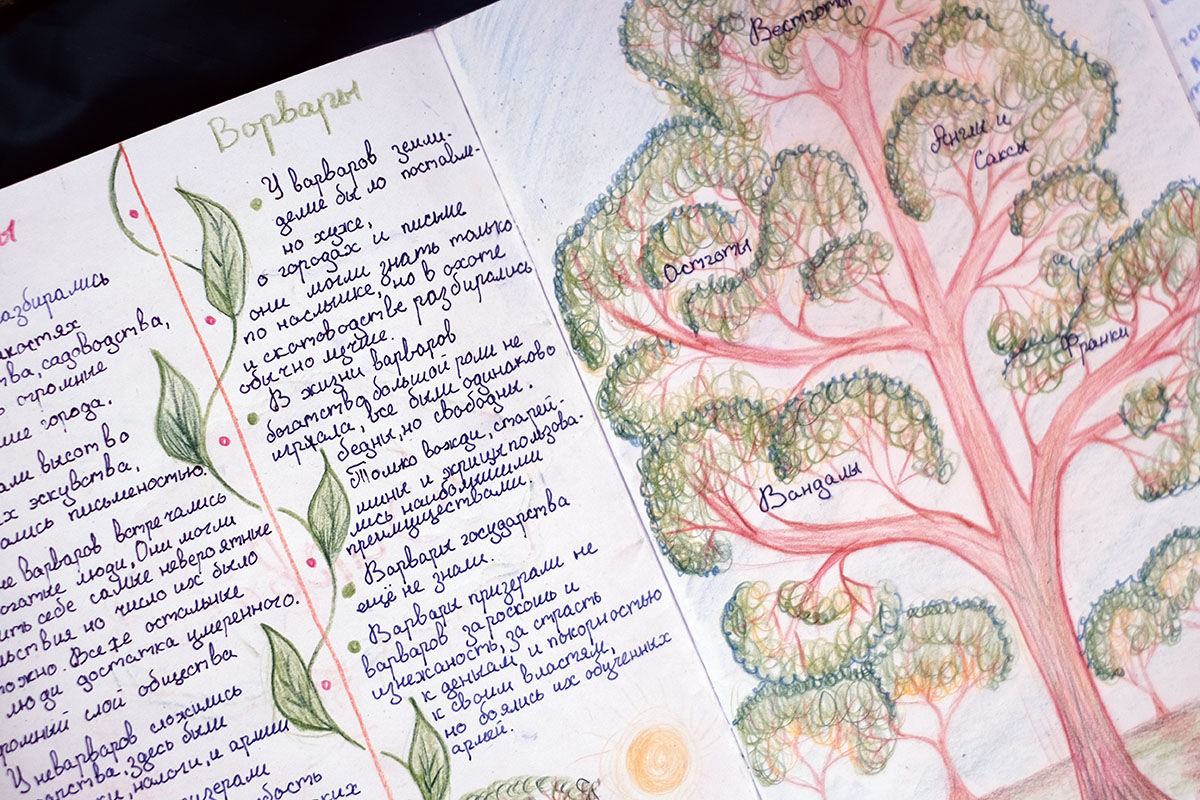 разбирались
садоводства,
огромные
города.
высство
эскувства,
письменостью.
варваров встречались
люди, Они могли
себе самые невероятные
но число их было
Все же остальные
люди достатка умеренного.
слой общества
У неварваров сложились
здесь были
налоги, и армии
Ворвары
У варваров земли-
делие было поставле-
но хуже,
о городах и письме
они могли знать только
по наслышке, но в охоте
и скотоводстве разбирались
обычно лучше.
В жизни варваров
богатства большой роли не
играла, все были одинаково
бедны, но свабодны.
Только вожди, старей-
шины и жрицы пользова-
лись наибошими
преимуществами.
Варвары государства
ещё не знали.
Варвары призерали не
варваров за роскошь и
изнежаность, за страсть
к деньгам и покорностью
к своим властям,
но боялись их обученных
армей.
Вестготы
Англы и
Саксы
Остготы
Франки
Вандалы